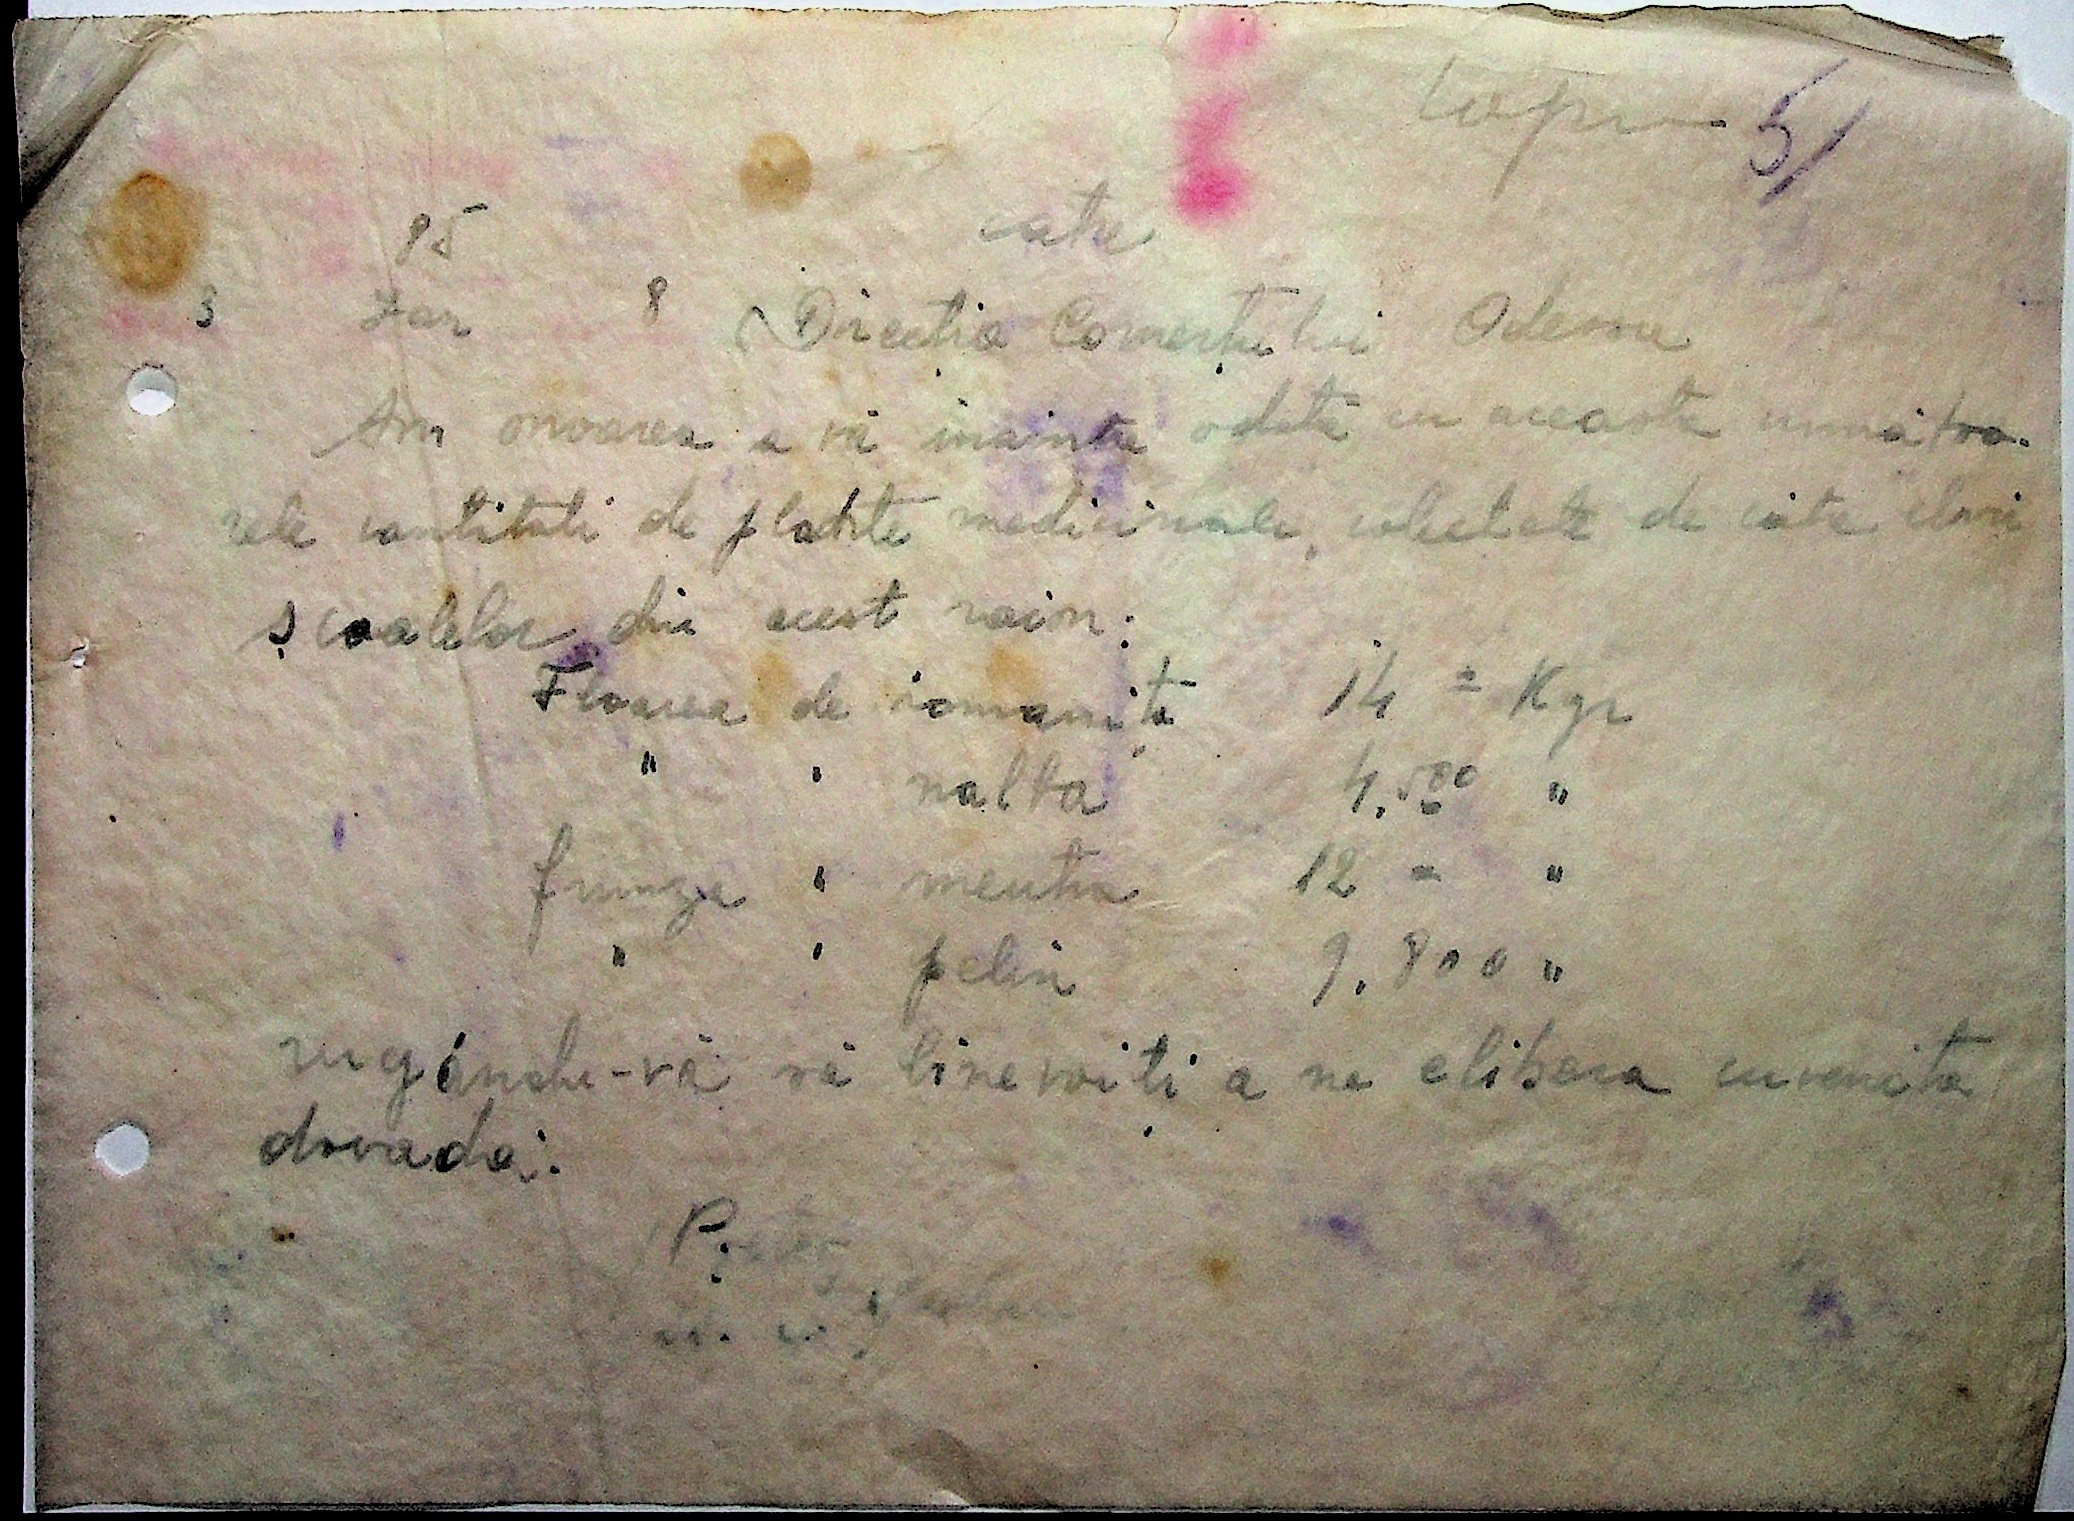 Copie 51
95
catre
3 Iar 8 Directia Comerțului Odessa
Am onoarea a vă inainta odată cu aceasta urmatoa-
rele cantitati de plante medicinale, colectate de câte elevii
școalelor din acest raion:
Floarea de romanita 14 = Kgr
" " nalba 4.500 "
frunze " menta 12 = "
" " pelin 9.800 "
rugându-vă să binevoiti a ne elibera cuvenita
dovada.
Pretor